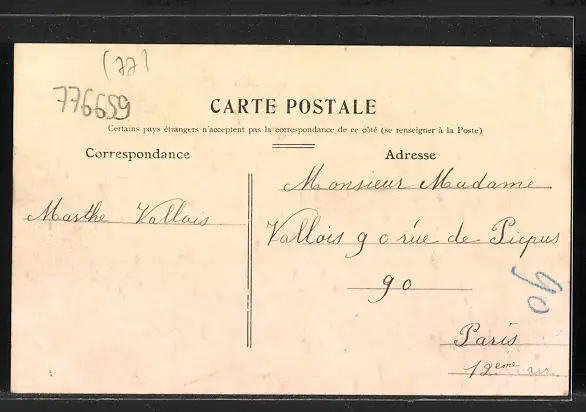 (77)
776659
CARTE POSTALE
Certains pays étrangers n'acceptent pas la correspondance de ce côté (se renseigner à la Poste)
Correspondance
Marthe Vallois
Adresse
Monsieur Madame
Vallois 90 rue de Picpus
90
90
Paris
12eme arr